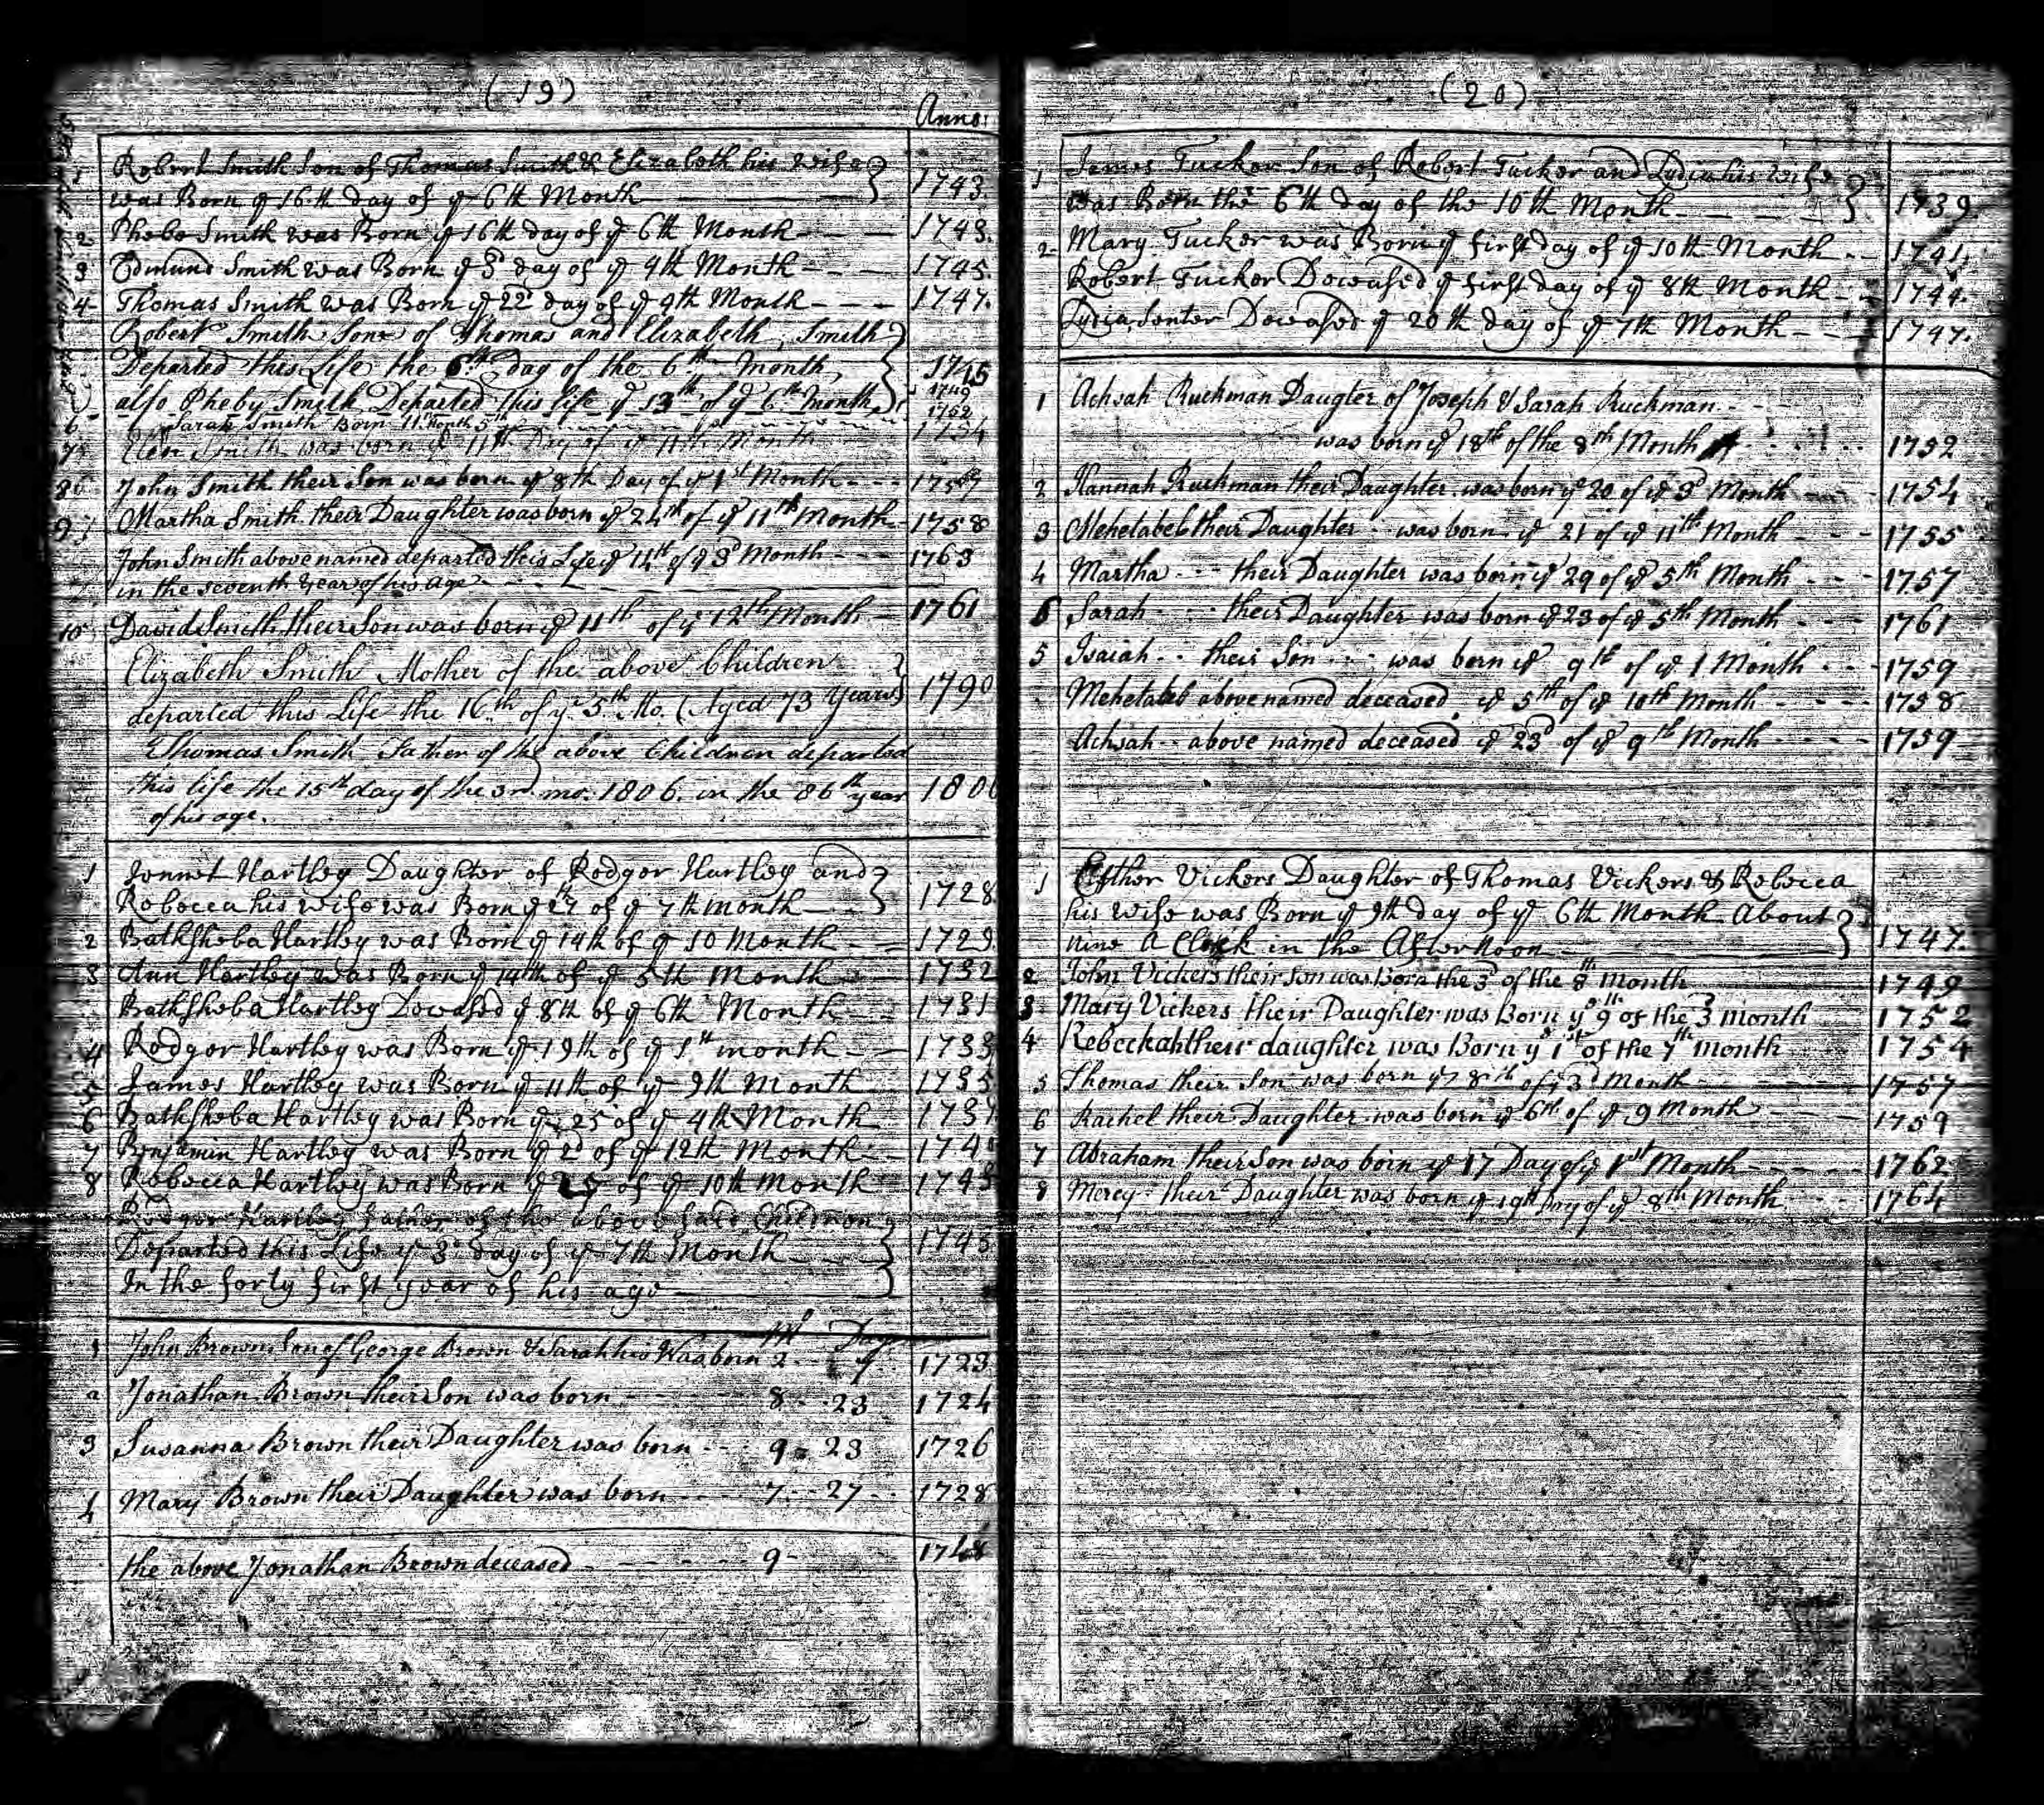 (19)
Anno:
1 Robert Smith Son of Thomas Smith & Elizabeth his Wife
was Born ye 16th day of ye 6th Month 1743
2 Phebe Smith was Born ye 16th day of ye 6th Month 1743.
3 Edmund Smith was Born ye 3d day of ye 9th Month 1745.
4 Thomas Smith was Born ye 22d day of ye 9th Month 1747.
Robert Smith Sone of Thomas and Elizabeth Smith
Departed this Life the 6th day of the 6th month 1745
also Pheby Smith Departed this life ye 13th of ye 6th month 1749
6 Sarah Smith Born 11 Month 5th 1752
7 Smith was born ye 11th Day of ye 11th Month 1754
8 John Smith their Son was born ye 8th Day of ye 1st Month
9 Martha Smith their Daughter was born ye 24th of ye 11th Month 1758
John Smith above named departed this Life ye 14th of ye 3d Month 1763
in the seventh year of his age
10 David Smith their Son was born ye 11th of ye 12th Month 1761
Elizabeth Smith Mother of the above Children
departed this Life the 16th of ye 5th Mo. (Aged 73 Years) 1790
Thomas Smith Father of the above Children departed
this life the 15th day of the 3rd mo. 1806. in the 86th year 1806
of his age.
1 Jennet Hartley Daughter of Rodger Hartley and
Rebecca his wife was Born ye 27 of ye 7th month 1728.
2 Bathsheba Hartley was Born ye 14th of ye 10 Month 1729.
3 Ann Hartley was Born ye 14th of ye 5th Month 1732
Bathsheba Hartley Deceased ye 8th of ye 6th Month 1731
4 Rodger Hartley was Born ye 19th of ye 1th month 1733
5 James Hartley was Born ye 11th of ye 9th Month 1735
6 Bathsheba Hartley was Born ye 25 of ye 4th Month
7 Benjamin Hartley was Born ye 2d of ye 12th Month
8 Rebecca Hartley was Born ye 25 of ye 10th Month
Rodger Hartley Father of the above said Children
Departed this Life ye 3d day of ye 7th Month
In the forty first year of his age
M Days
1 John Brown Son of George Brown & Sarah his W was born 2 9 1723
2 Jonathan Brown their Son was born 8 23 1724
3 Susanna Brown their Daughter was born 9 23 1726
4 Mary Brown their Daughter was born 7 27 1728
the above Jonathan Brown deceased 9 1748
(20)
1 James Tucker Son of Robert Tucker and Lydia his Wife
was Born the 6th day of the 10th Month 1739.
2 Mary Tucker was Born ye first day of ye 10th Month 1741.
Robert Tucker Deceased ye first day of ye 8th Month 1744.
Lydia Senter Deceased ye 20th day of ye 7th Month 1747.
1 Achsah Ruckman Daugter of Joseph & Sarah Ruckman
was born ye 18th of the 8th Month 1752
2 Hannah Ruckman their Daughter was born ye 20 of ye 3d Month 1754
3 Mehetabel their Daughter was born ye 21 of ye 11th Month 1755
4 Martha their Daughter was born ye 29 of ye 5th Month 1757
6 Sarah their Daughter was born ye 23 of ye 5th Month 1761
5 Isaiah their Son was born ye 9th of ye 1 Month 1759
Mehetabel above named deceased ye 5th of ye 10th Month 1758
Achsah above named deceased ye 23d of ye 9th Month 1759
1 Esther Vickers Daughter of Thomas Vickers & Rebecca
his Wife was Born ye 9th day of ye 6th Month About
nine a Clock in the Afternoon 1747.
2 John Vickers their Son was Born the 3d of the 8th Month 1749
3 Mary Vickers their Daughter was Born ye 9th of the 3 month 1752
4 Rebeckah their daughter was Born ye 1st of the 7th month 1754
5 Thomas their Son was born ye 8th of ye 3d Month 1757
6 Rachel their Daughter was born ye 6th of ye 9 Month 1759
7 Abraham their Son was born ye 17 Day of ye 1st Month 1762
8 Mercy their Daughter was born ye 19th Day of ye 8th Month 1764